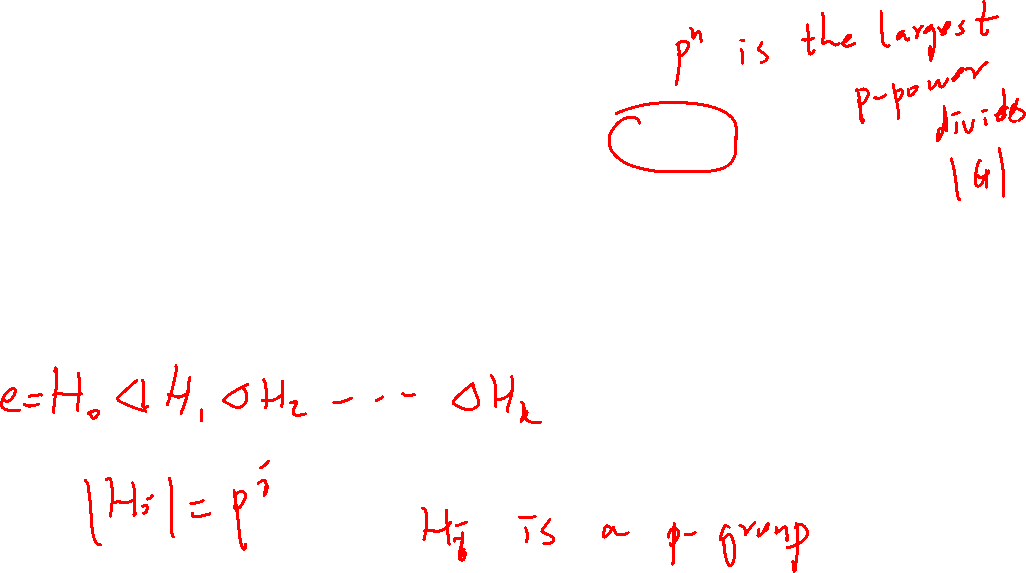 pⁿ is the largest
p-power
divides
|G|
e=H₀ ◁ H₁ ◁ H₂ --- ◁ Hₖ
|Hⱼ| = pʲ
Hⱼ is a p-group